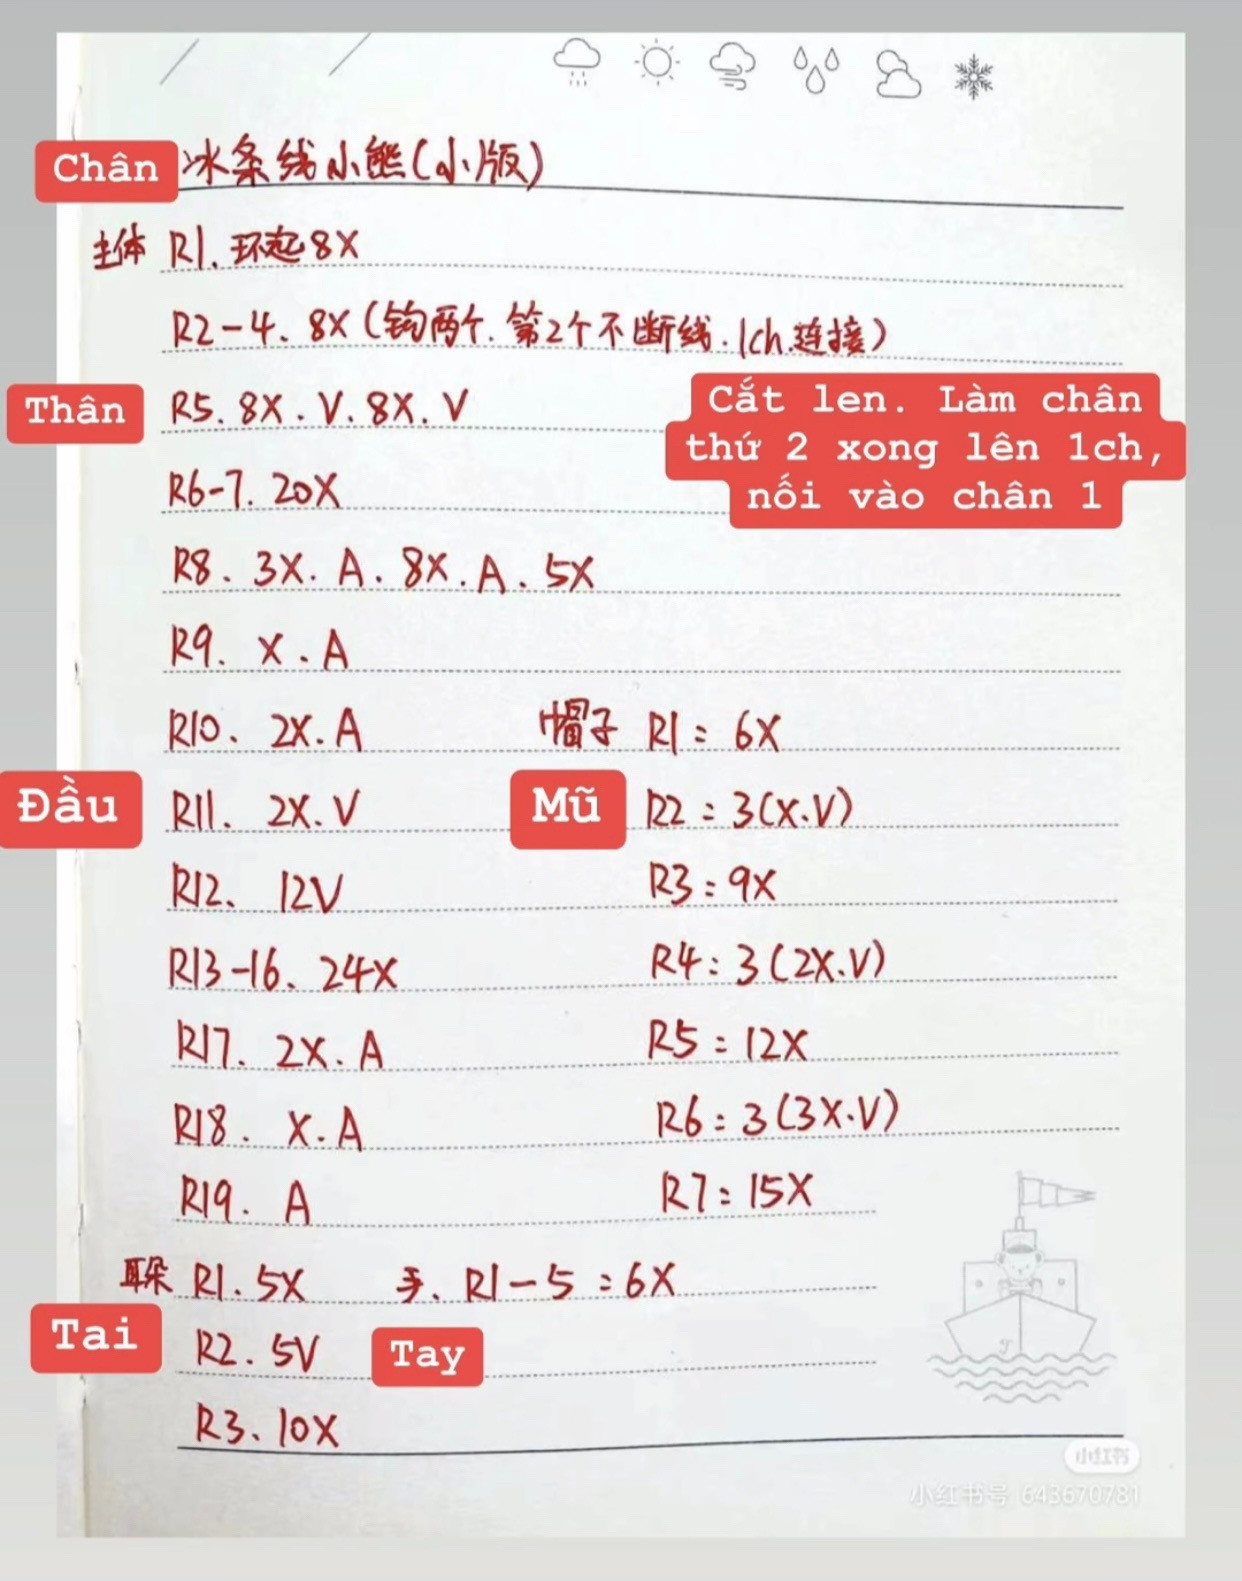 Chân 冰条线小熊(小版)
主体 R1. 环起8X
R2-4、8X(钩两个.第2个不断线.1ch.连接)
Thân R5. 8X. V. 8X. V
Cắt len. Làm chân
thứ 2 xong lên 1ch,
nối vào chân 1
R6-7. 20X
R8、3X. A. 8X. A. 5X
R9. X. A
R10、2X. A
Đầu R11. 2X. V
R12、12V
R13-16、24X
R17. 2X. A
R18. X. A
R19. A
帽子 R1: 6X
Mũ R2: 3(X.V)
R3: 9X
R4: 3(2X.V)
R5: 12X
R6: 3(3X.V)
R7: 15X
耳朵 R1. 5X
Tai R2. 5V
R3、10X
手、R1-5: 6X
Tay
小红书
小红书号 643670781